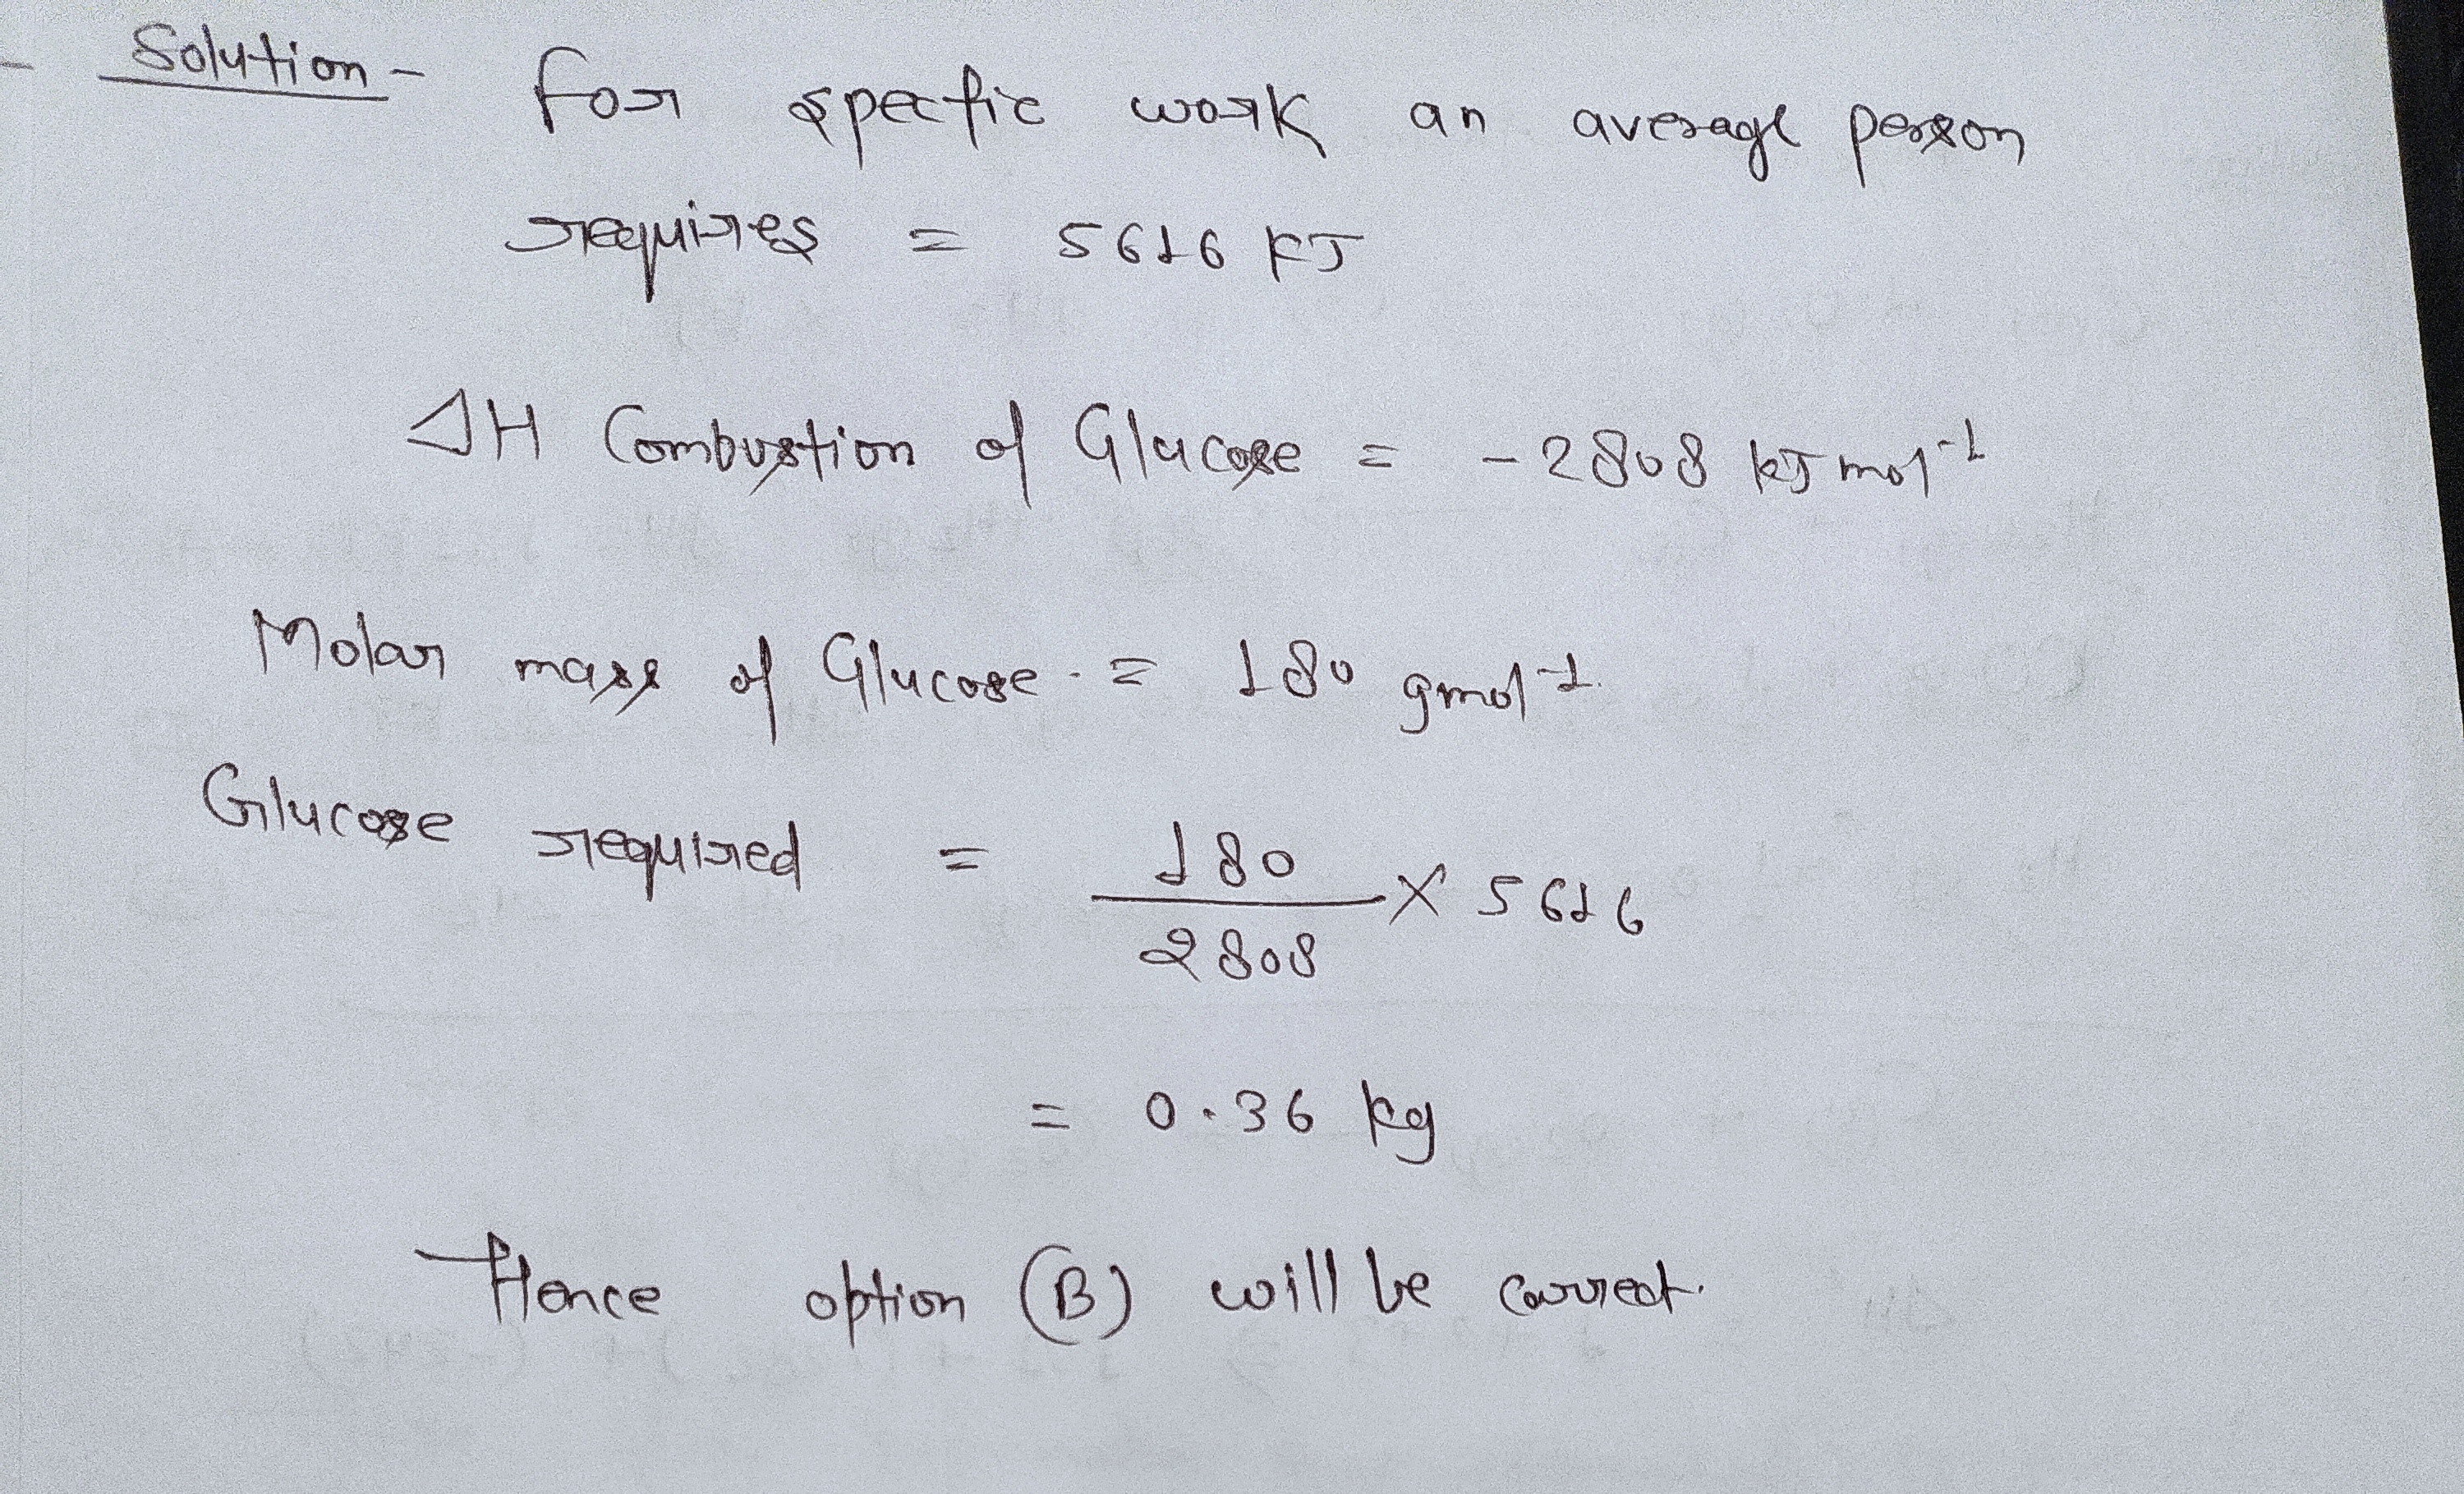 Solution - for specfic work an average person
requires = 5616 KJ
ΔH Combustion of Glucose = -2808 kJ mol⁻¹
Molar mass of Glucose. = 180 gmol⁻¹.
Glucose required = 180/2808 × 5616
= 0.36 kg
Hence option (B) will be correct.